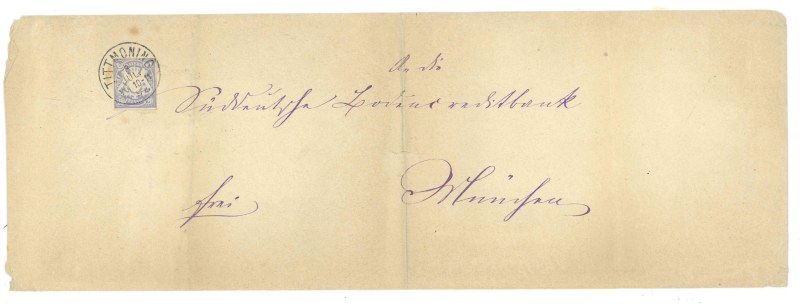 TITTMONING
An die
Süddeutsche Bodencreditbank
frei
München